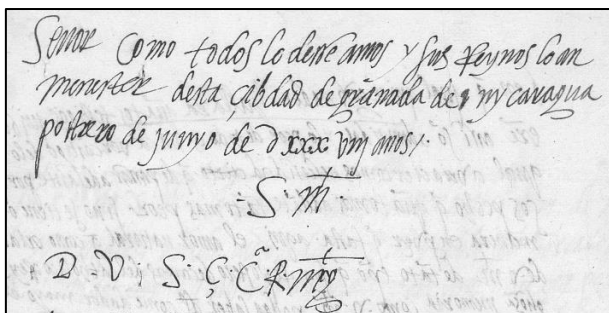 Señor Como todos lo deseamos y sus Reynos lo an
menester desta çibdad de granada de nycaragua
postrero de junyo de dxxx vnj años /.
: S. M
D V ; S. Ç C R mt